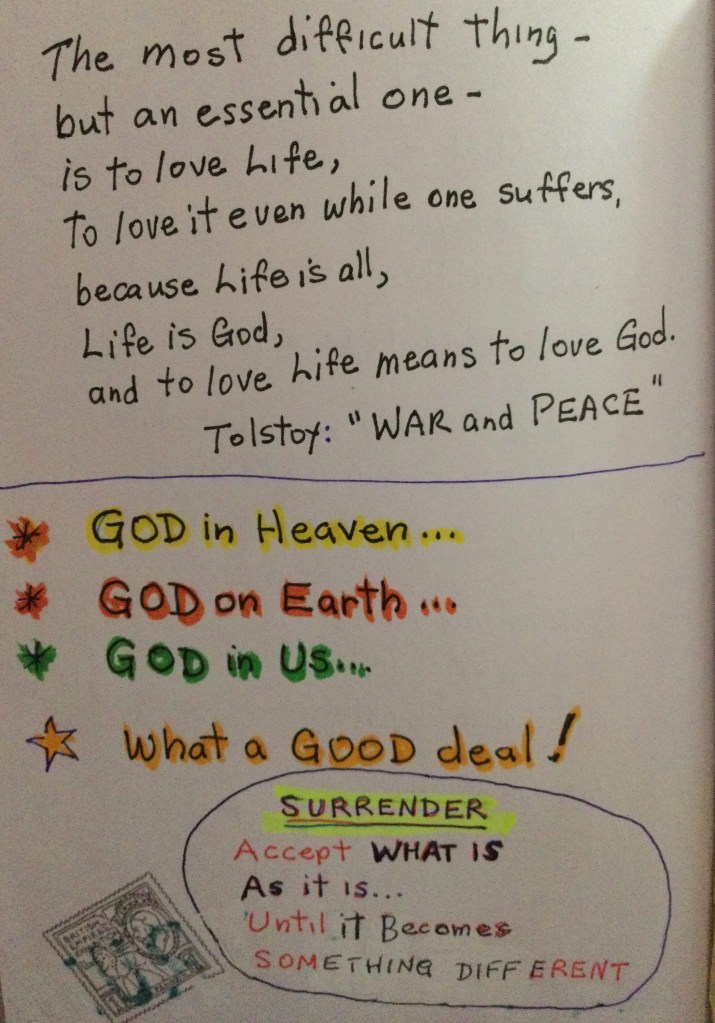 The most difficult thing -
but an essential one -
is to love Life,
to love it even while one suffers,
because Life is all,
Life is God,
and to love Life means to love God.
Tolstoy: "WAR and PEACE"
* GOD in Heaven...
* GOD on Earth...
* GOD in US...
What a GOOD deal!
SURRENDER
Accept WHAT IS
As it is...
Until it Becomes
SOMETHING DIFFERENT
BRITISH
EMPIRE
EXHIBITION